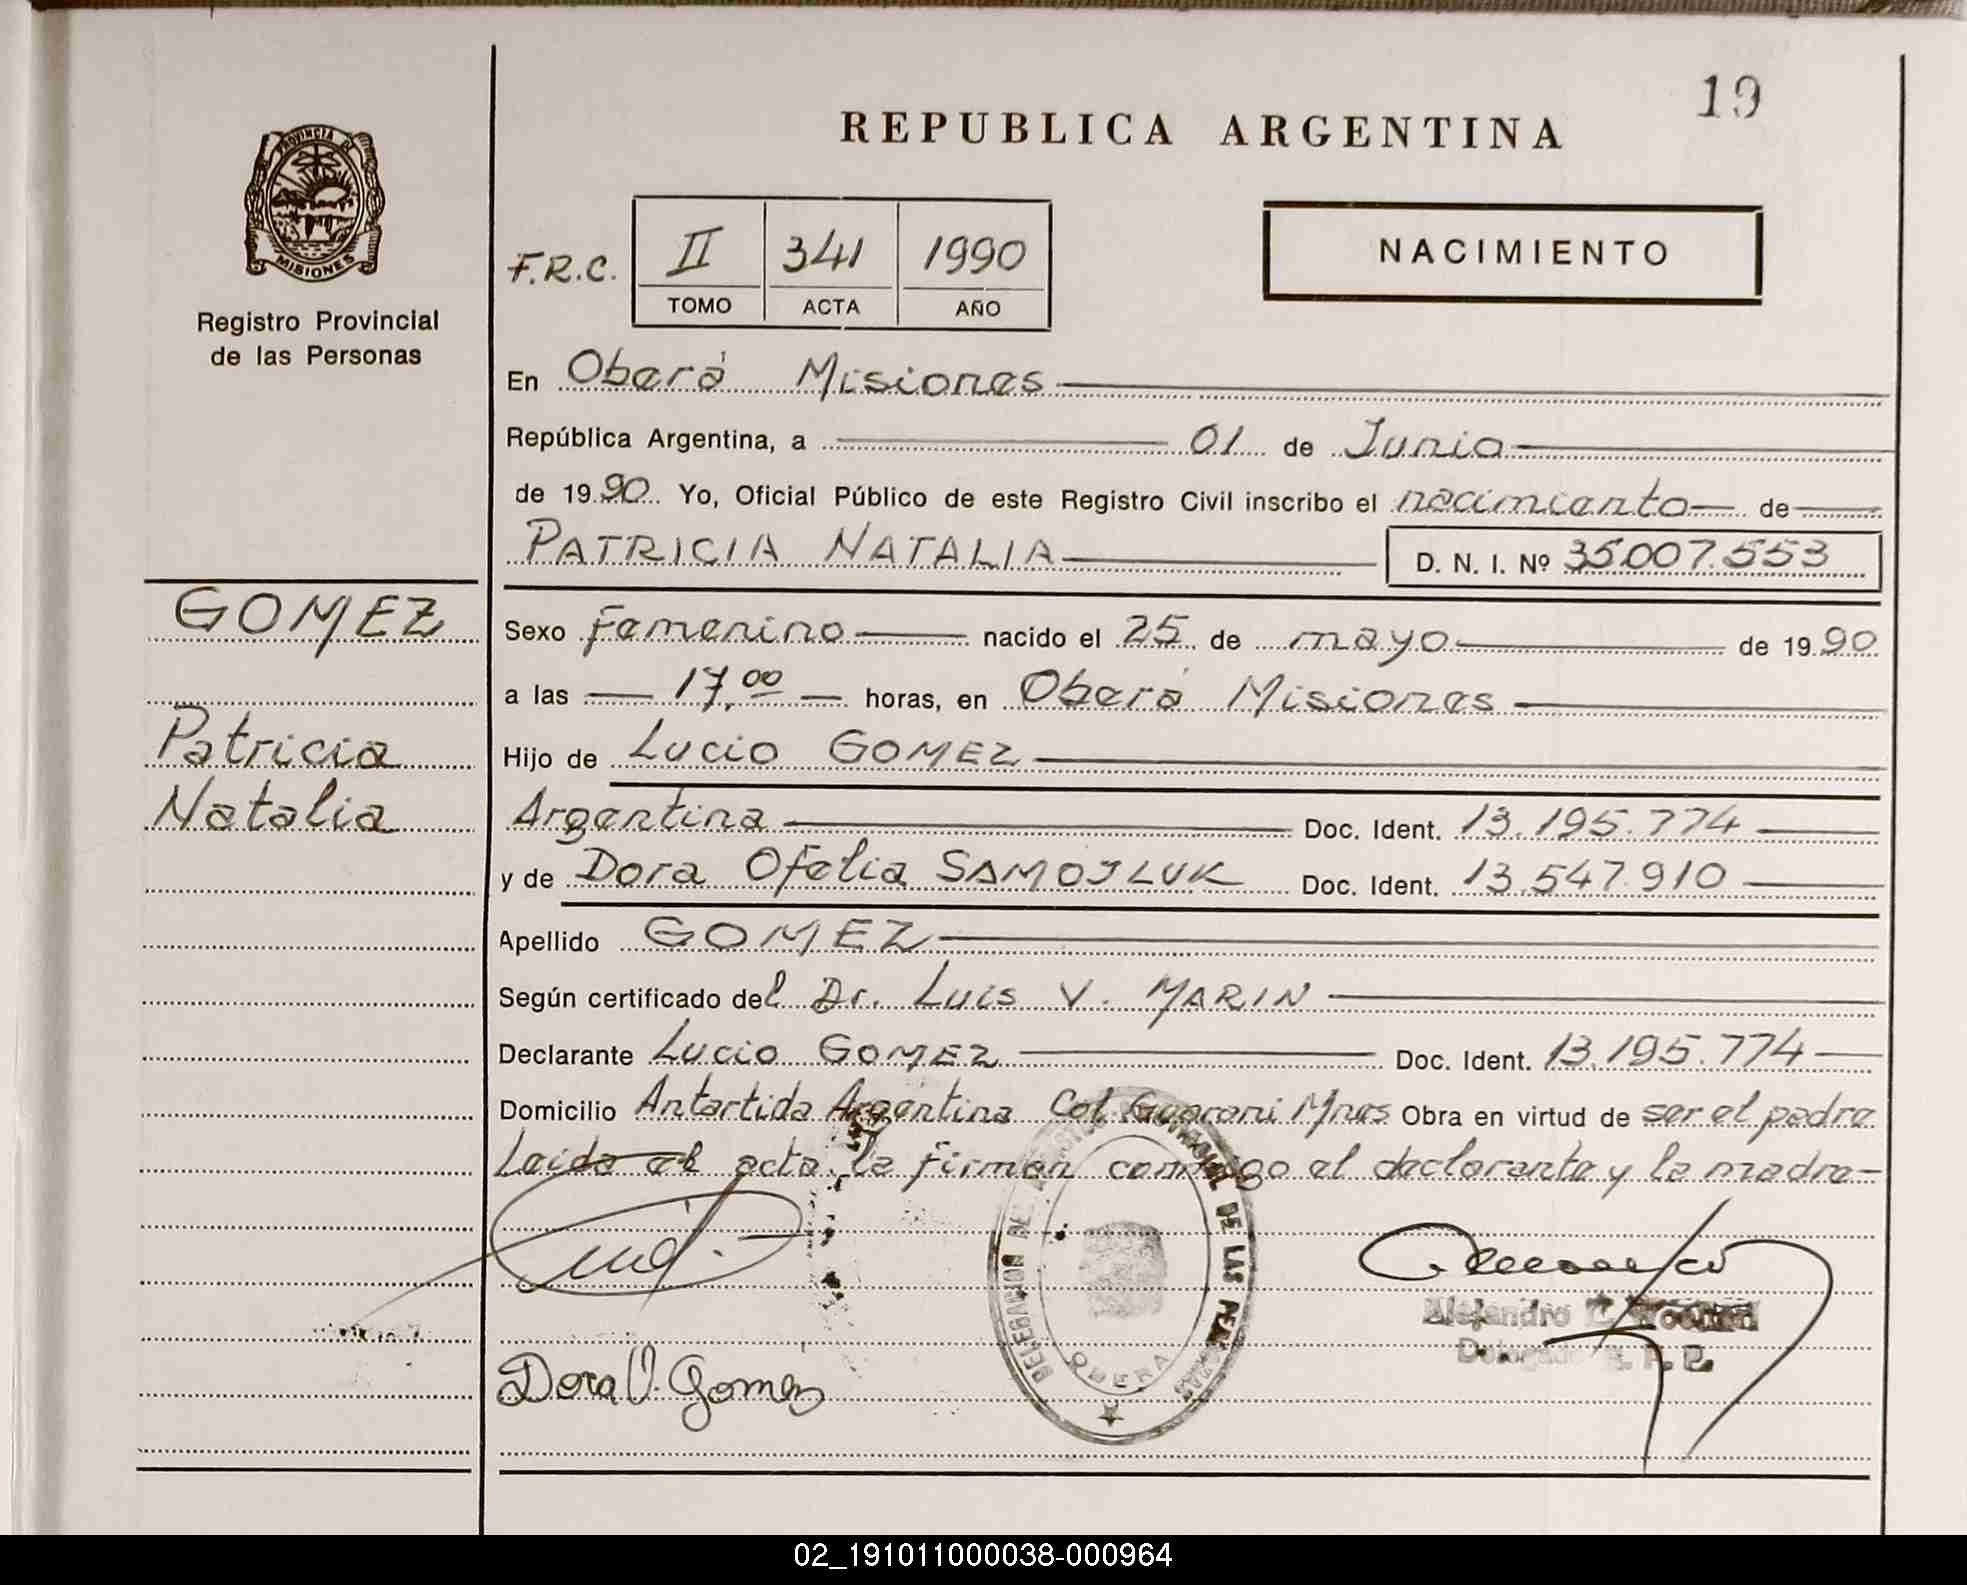 19
REPUBLICA ARGENTINA
PROVINCIA DE
MISIONES
Registro Provincial
de las Personas
F.R.C.
II 341 1990
TOMO ACTA AÑO
NACIMIENTO
En Oberá Misiones
República Argentina, a 01 de Junio
de 1990 Yo, Oficial Público de este Registro Civil inscribo el nacimiento de
PATRICIA NATALIA D. N. I. Nº 35.007.553
GOMEZ
Patricia
Natalia
Sexo femenino nacido el 25 de mayo de 1990
a las 17,00 horas, en Oberá Misiones
Hijo de Lucio GOMEZ
Argentina Doc. Ident. 13.195.774
y de Dora Ofelia SAMOJLUK Doc. Ident. 13.547.910
Apellido GOMEZ
Según certificado del Dr. Luis V. MARIN
Declarante Lucio GOMEZ Doc. Ident. 13.195.774
Domicilio Antartida Argentina Col Guarani Mnes Obra en virtud de ser el padre
Leida el acta, la firman conmigo el declarante y la madre
DELEGACION DE LAS
OBERA
Alejandro C.
Delegado R. P. P.
Dora O. Gomez
02_191011000038-000964